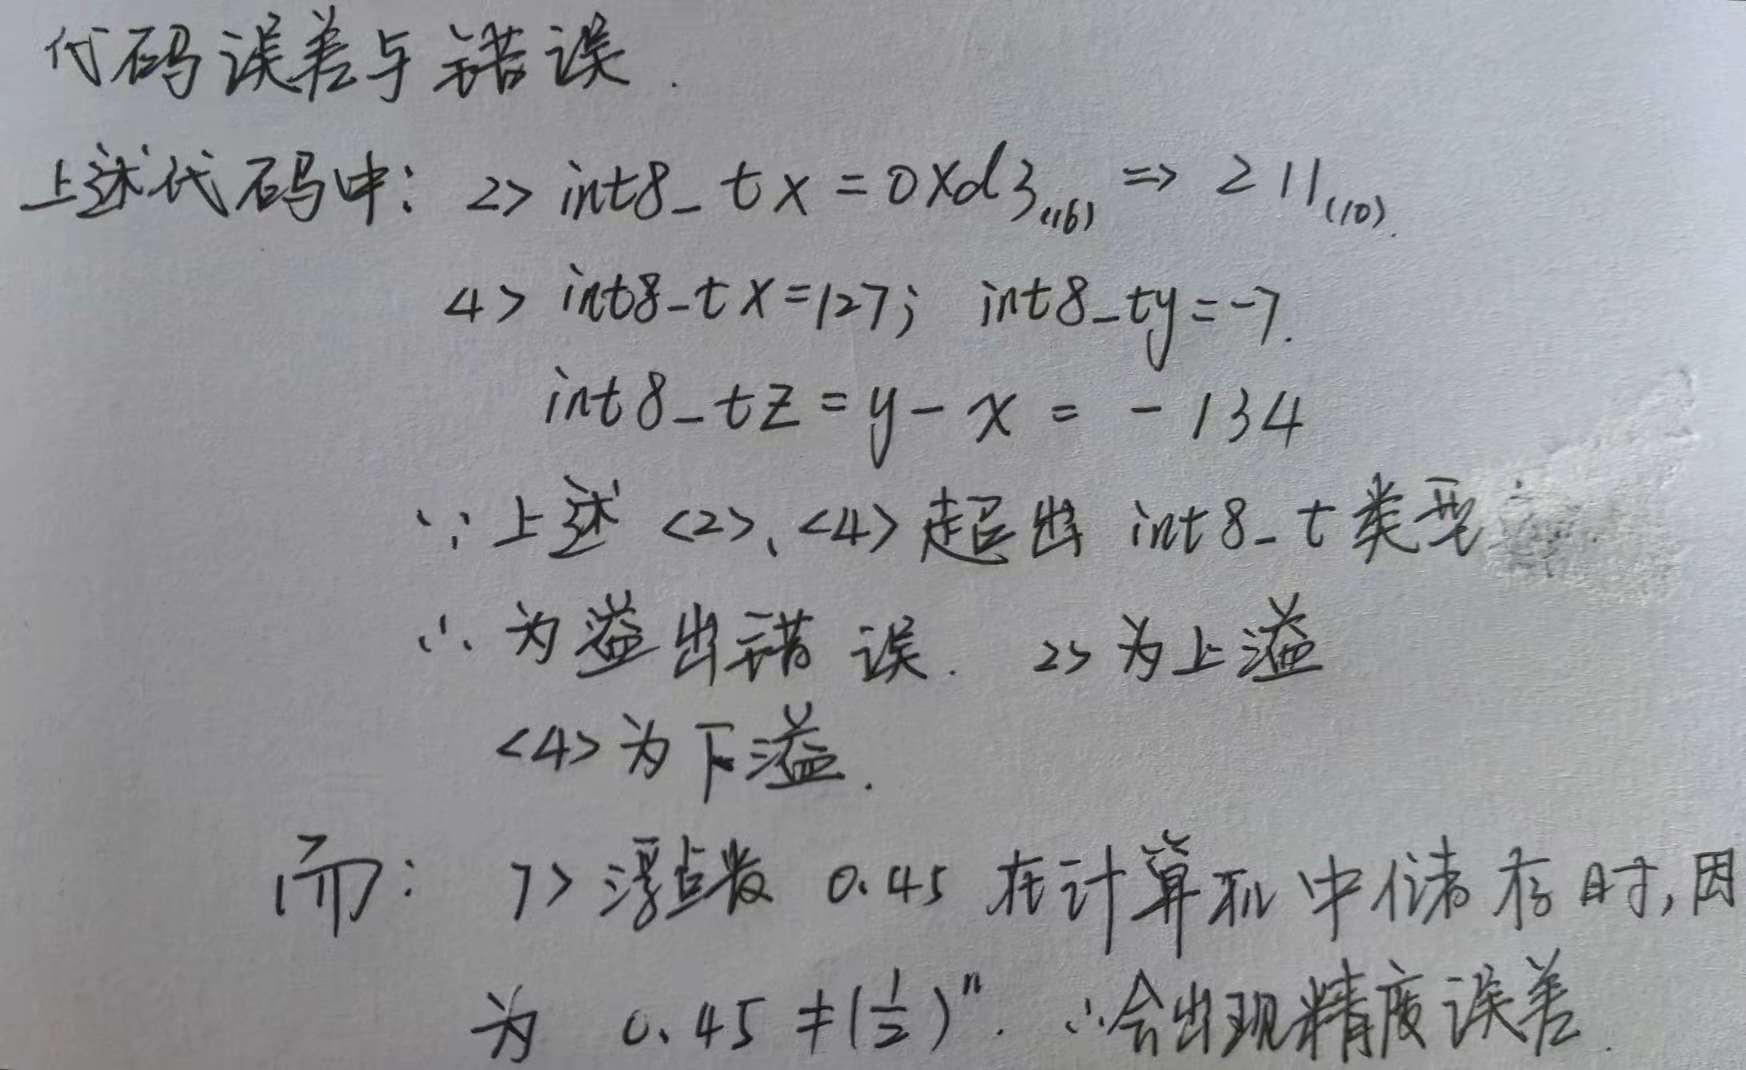 代码误差与错误.
上述代码中: 2> int8_t x = 0xd3₍₁₆₎ => 211₍₁₀₎.
4> int8_t x=127; int8_t y=-7.
int8_t z = y - x = - 134
∵上述 <2>、<4> 超出 int8_t 类型
∴ 为溢出错误. 2> 为上溢
<4> 为下溢.
而: 7> 浮点数 0.45 在计算机中储存时,因
为 0.45 ≠ (1/2)ⁿ. ∴会出现精度误差.